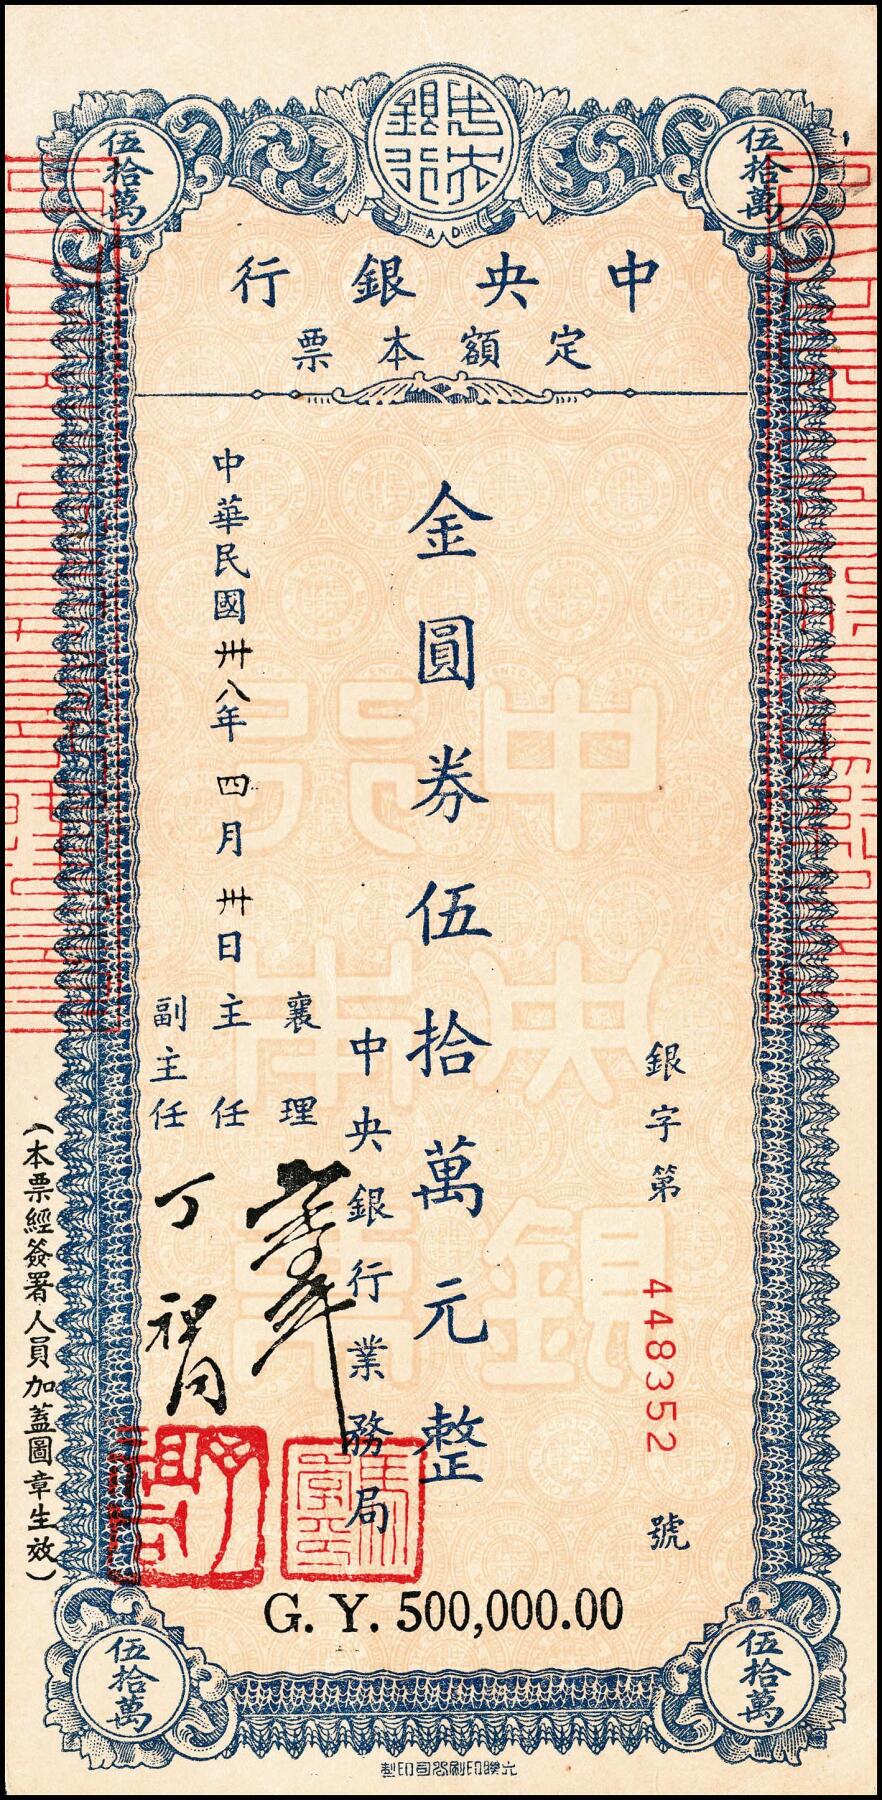 伍拾萬
中央銀行
伍拾萬
AD
中央銀行
定額本票
銀字第 448352 號
金圓券伍拾萬元整
中央銀行業務局
襄理
主任
副主任 丁祖同
中華民國卅八年四月卅日
(本票經簽署人員加蓋圖章生效)
G. Y. 500,000.00
伍拾萬
伍拾萬